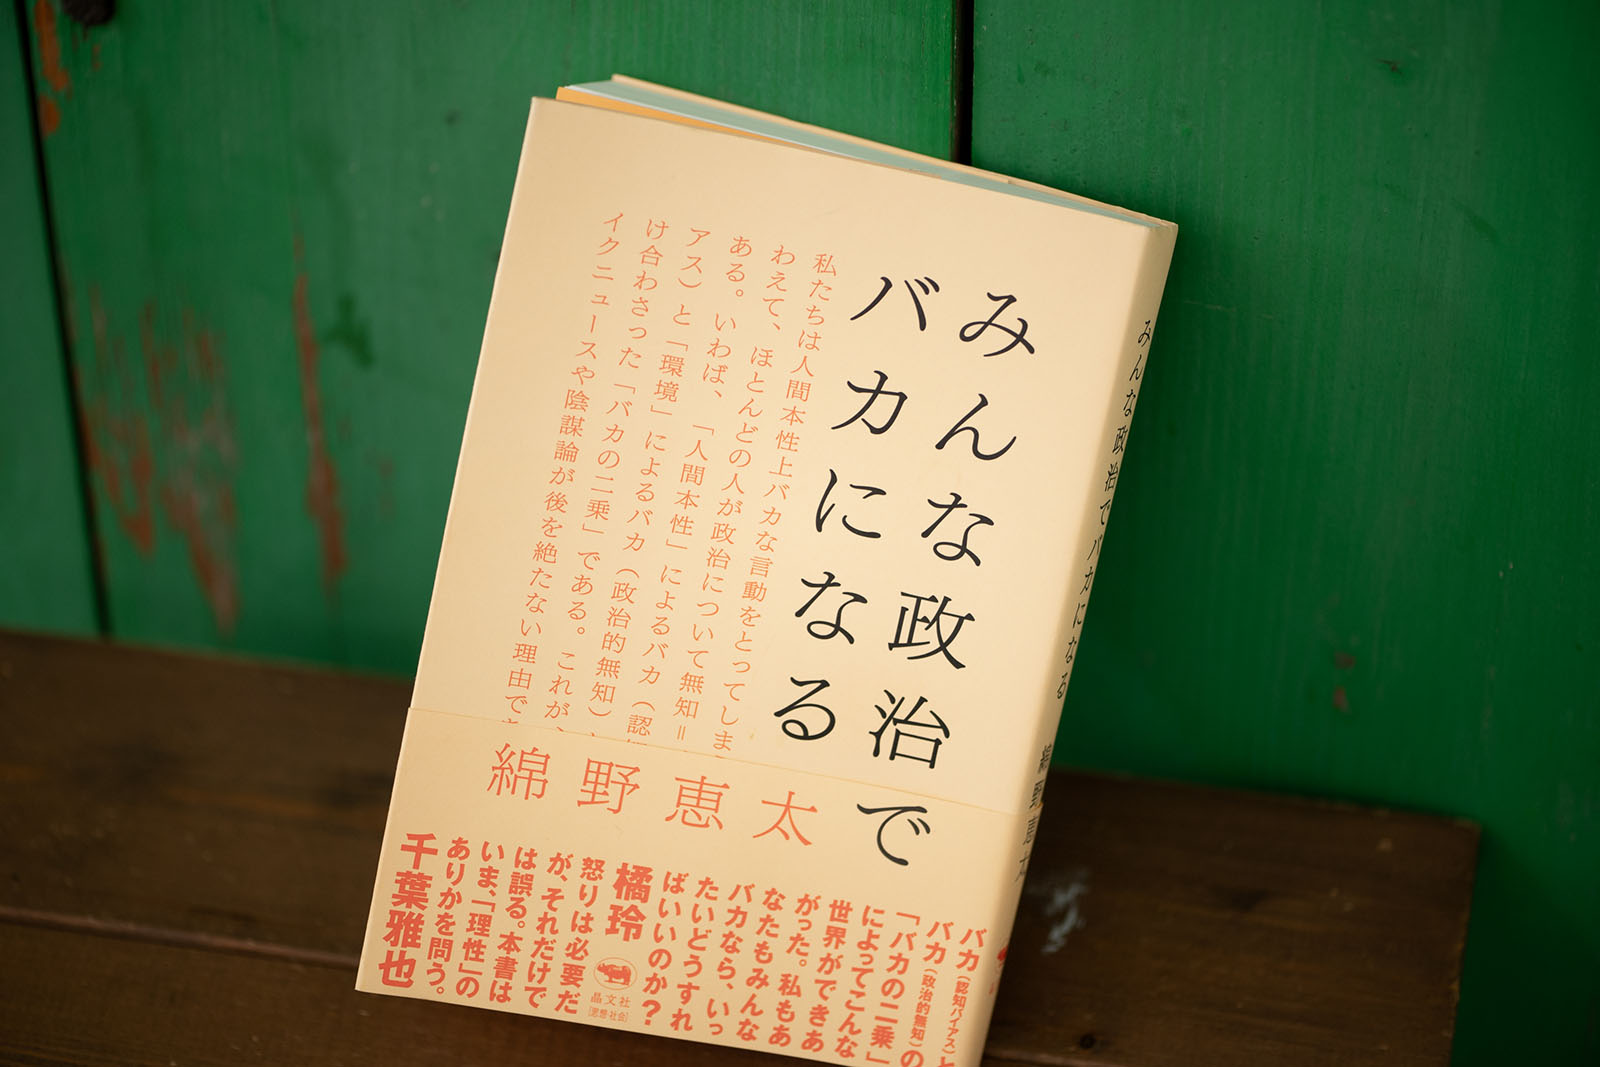 みんな政治で
バカになる
私たちは人間本性上バカな言動をとってしま
わえて、ほとんどの人が政治について無知＝
ある。いわば、「人間本性」によるバカ（認知
アス）と「環境」によるバカ（政治的無知）
け合わさった「バカの二乗」である。これが、
イクニュースや陰謀論が後を絶たない理由で
綿野恵太
バカ（認知バイアス）と
バカ（政治的無知）の
「バカの二乗」
によってこんな
世界ができあ
がった。私もあ
なたもみんな
バカなら、いっ
たいどうすれ
ばいいのか？
橘玲
怒りは必要だ
が、それだけで
は誤る。本書は
いま、「理性」の
ありかを問う。
千葉雅也
晶文社
［思想・社会］
みんな政治でバカになる　綿野恵太